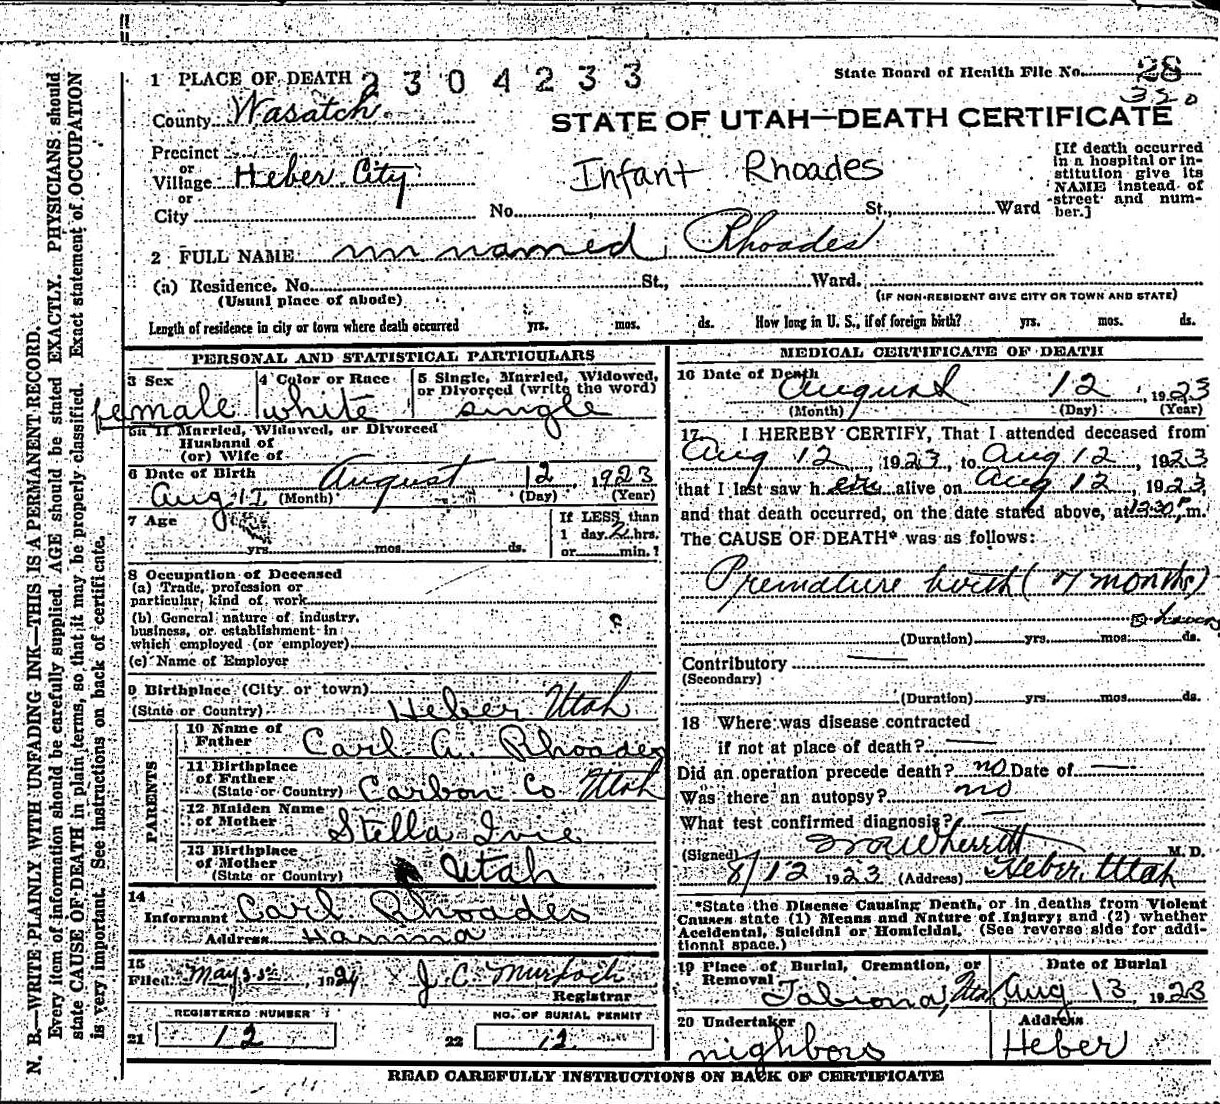 1 PLACE OF DEATH 2304233
State Board of Health File No. 28
350
County Wasatch
STATE OF UTAH—DEATH CERTIFICATE
Precinct
or
Village Heber City
or
City
Infant Rhoades
[If death occurred
in a hospital or in-
stitution give its
NAME instead of
street and num-
ber.]
No. St., Ward
2 FULL NAME un named Rhoades
(a) Residence. No. St., Ward.
(Usual place of abode)
(IF NON-RESIDENT GIVE CITY OR TOWN AND STATE)
Length of residence in city or town where death occurred yrs. mos. ds. How long in U. S., if of foreign birth? yrs. mos. ds.
PERSONAL AND STATISTICAL PARTICULARS
3 Sex
female
4 Color or Race
white
5 Single, Married, Widowed,
or Divorced (write the word)
single
5a If Married, Widowed, or Divorced
Husband of
(or) Wife of
6 Date of Birth August 12, 1923
Aug 12 (Month) (Day) (Year)
7 Age
yrs. mos. ds.
If LESS than
1 day 2 hrs.
or min.?
8 Occupation of Deceased
(a) Trade, profession or
particular, kind of work
(b) General nature of industry,
business, or establishment in
which employed (or employer)
(c) Name of Employer
9 Birthplace (City or town)
(State or Country) Heber Utah
PARENTS
10 Name of
Father Carl A. Rhoades
11 Birthplace
of Father
(State or Country) Carbon Co Utah
12 Maiden Name
of Mother Stella Ivie
13 Birthplace
of Mother
(State or Country) Utah
14
Informant Carl Rhoades
Address Hanna
15
Filed May 1924 J. C. Murdoch
Registrar
REGISTERED NUMBER
21 12
NO. OF BURIAL PERMIT
22 12
MEDICAL CERTIFICATE OF DEATH
16 Date of Death
August 12, 1923
(Month) (Day) (Year)
17 I HEREBY CERTIFY, That I attended deceased from
Aug 12, 1923, to Aug 12, 1923
that I last saw h er alive on Aug 12, 1923,
and that death occurred, on the date stated above, at 12:30 P m.
The CAUSE OF DEATH* was as follows:
Premature birth (7 months)
hours
(Duration) yrs. mos. ds.
Contributory
(Secondary)
(Duration) yrs. mos. ds.
18 Where was disease contracted
if not at place of death?
Did an operation precede death? no Date of
Was there an autopsy? no
What test confirmed diagnosis?
(Signed) M. D.
8/12 1923 (Address) Heber, Utah
*State the Disease Causing Death, or in deaths from Violent
Causes state (1) Means and Nature of Injury; and (2) whether
Accidental, Suicidal or Homicidal. (See reverse side for addi-
tional space.)
19 Place of Burial, Cremation, or
Removal
Tabiona, Utah
Date of Burial
Aug 13, 1923
20 Undertaker
nighbors
Address
Heber
READ CAREFULLY INSTRUCTIONS ON BACK OF CERTIFICATE
N. B.—WRITE PLAINLY WITH UNFADING INK—THIS IS A PERMANENT RECORD.
Every item of information should be carefully supplied. AGE should be stated EXACTLY. PHYSICIANS should
state CAUSE OF DEATH in plain terms, so that it may be properly classified. Exact statement of OCCUPATION
is very important. See instructions on back of certificate.